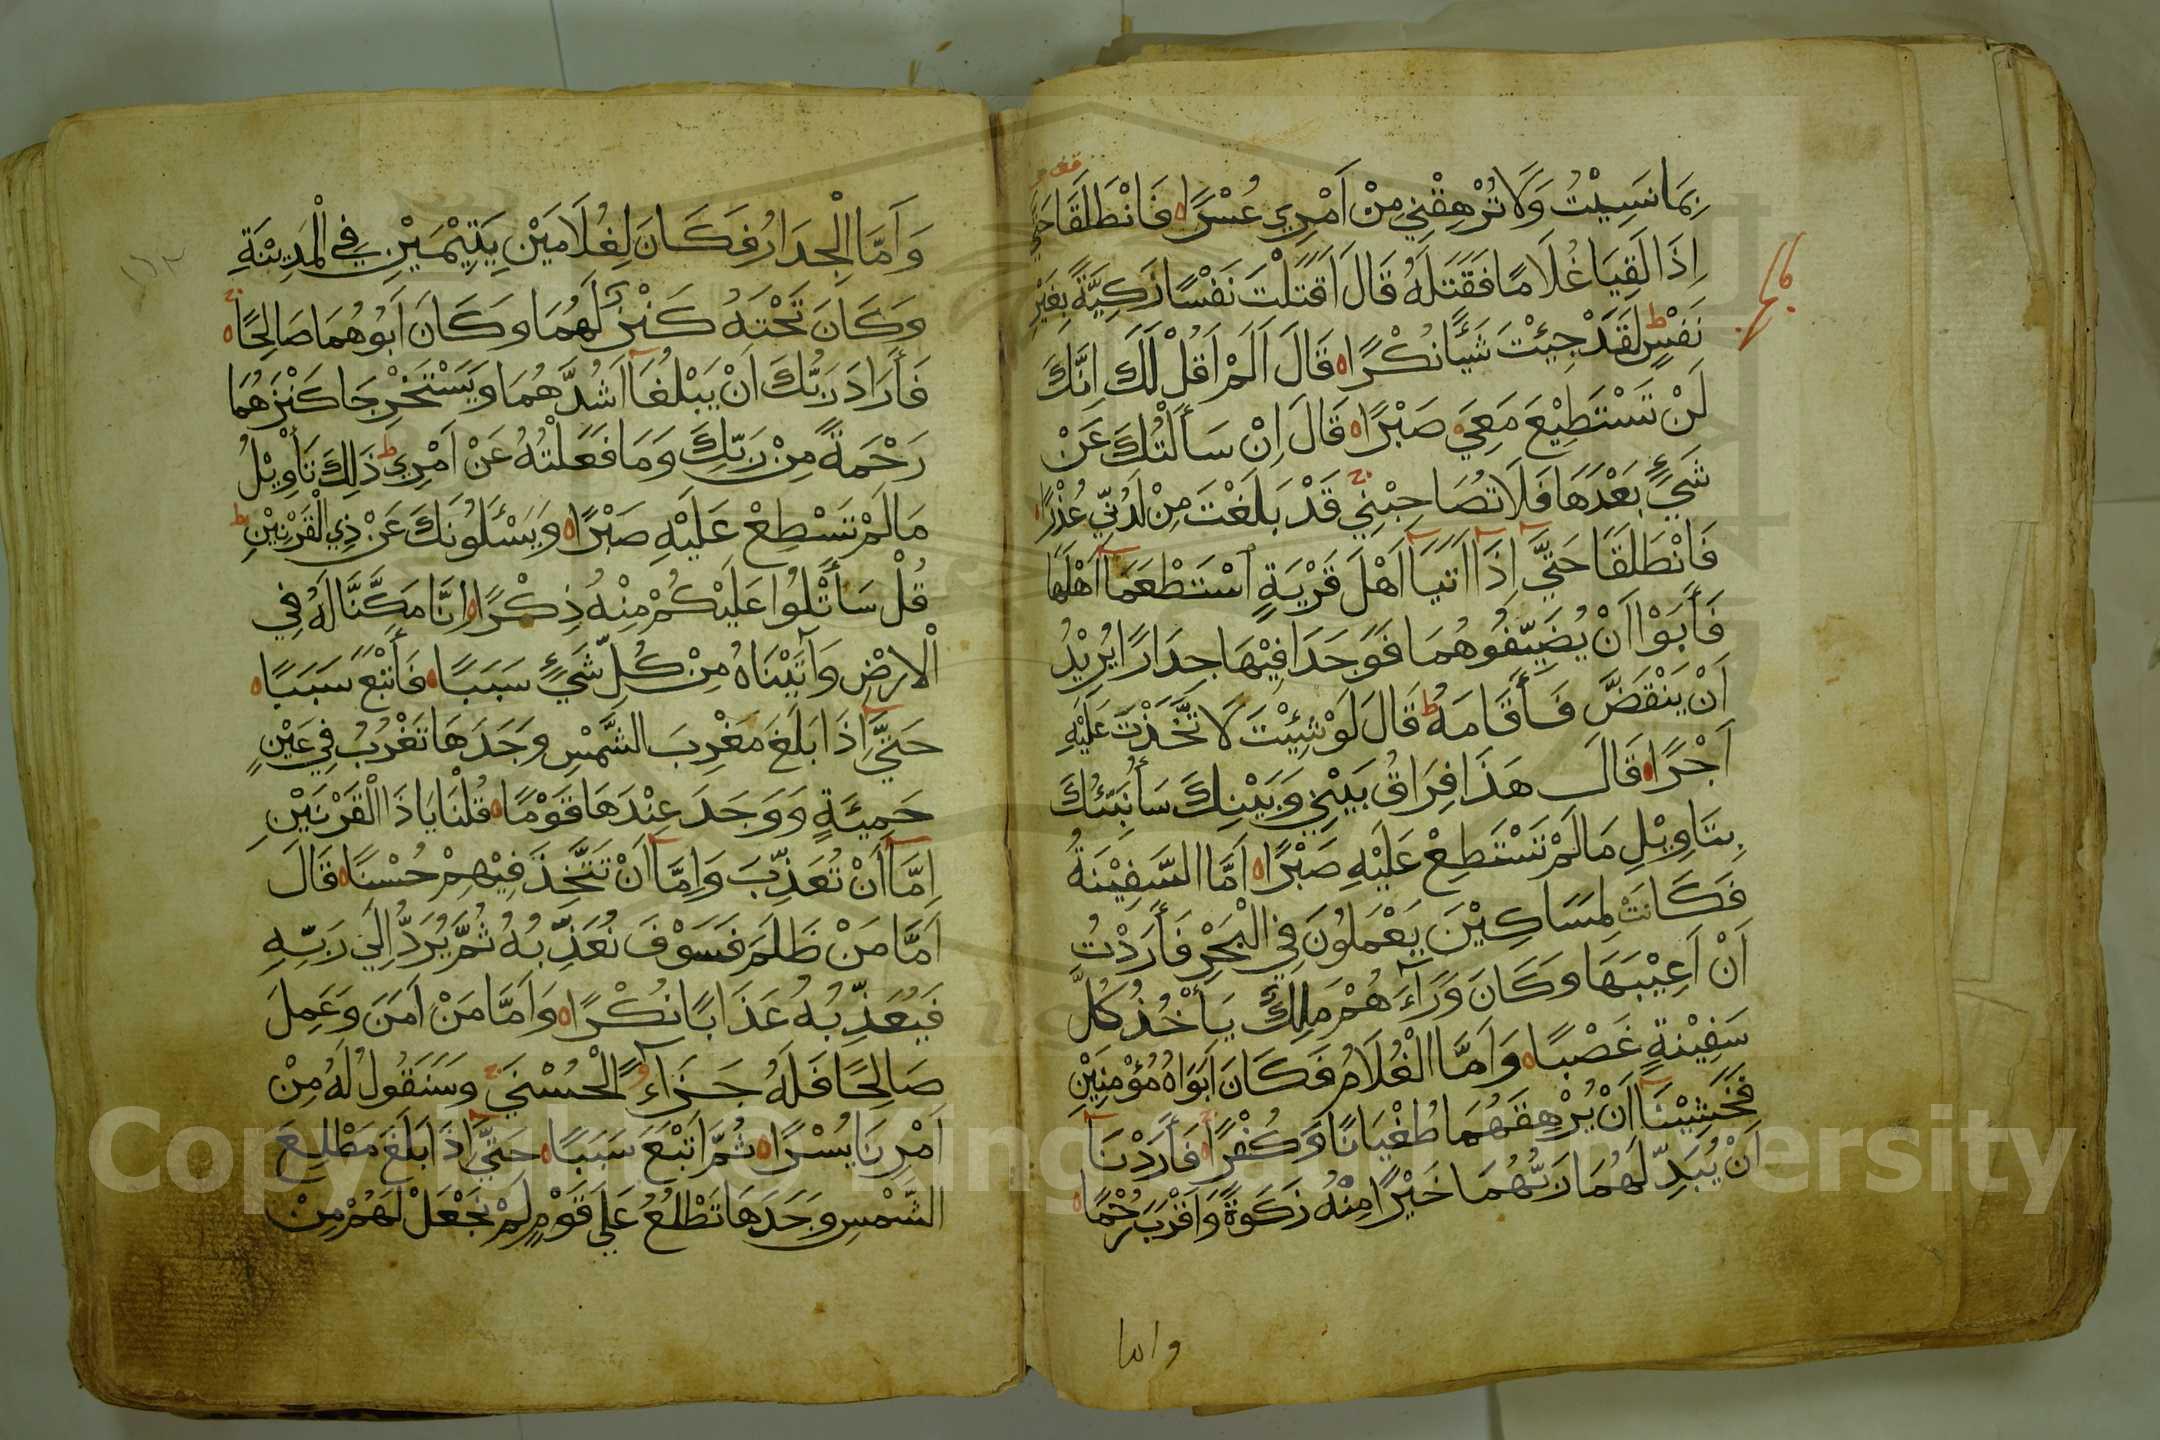 بِمَا نَسِيْتُ وَلَا تُرْهِقْنِي مِنْ اَمْرِي عُسْرًا فَانْطَلَقَا حَتَّى
اِذَا لَقِيَا غُلَامًا فَقَتَلَهُ قَالَ اَقَتَلْتَ نَفْسًا زَكِيَّةً بِغَيْرِ
نَفْسٍ ط لَقَدْ جِئْتَ شَيْئًا نُكْرًا قَالَ اَلَمْ اَقُلْ لَكَ اِنَّكَ
لَنْ تَسْتَطِيْعَ مَعِيَ صَبْرًا قَالَ اِنْ سَأَلْتُكَ عَنْ
شَيْءٍ بَعْدَهَا فَلَا تُصَاحِبْنِي ج قَدْ بَلَغْتَ مِنْ لَدُنِّي عُذْرًا
فَانْطَلَقَا حَتَّى اِذَا اَتَيَا اَهْلَ قَرْيَةٍ اسْتَطْعَمَا اَهْلَهَا
فَأَبَوْا اَنْ يُضَيِّفُوهُمَا فَوَجَدَا فِيْهَا جِدَارًا يُرِيْدُ
اَنْ يَنْقَضَّ فَأَقَامَهُ ط قَالَ لَوْ شِئْتَ لَاتَّخَذْتَ عَلَيْهِ
اَجْرًا قَالَ هَذَا فِرَاقُ بَيْنِي وَبَيْنِكَ سَأُنَبِّئُكَ
بِتَاوِيْلِ مَا لَمْ تَسْتَطِعْ عَلَيْهِ صَبْرًا اَمَّا السَّفِيْنَةُ
فَكَانَتْ لِمَسَاكِيْنَ يَعْمَلُونَ فِي الْبَحْرِ فَأَرَدْتُ
اَنْ اَعِيْبَهَا وَكَانَ وَرَاءَهُمْ مَلِكٌ يَأْخُذُ كُلَّ
سَفِيْنَةٍ غَصْبًا وَاَمَّا الْغُلَامُ فَكَانَ اَبَوَاهُ مُؤْمِنَيْنِ
فَخَشِيْنَا اَنْ يُرْهِقَهُمَا طُغْيَانًا وَكُفْرًا فَأَرَدْنَا
اَنْ يُبَدِّلَهُمَا رَبُّهُمَا خَيْرًا مِنْهُ زَكٰوةً وَاَقْرَبَ رُحْمًا
واما
وَاَمَّا الْجِدَارُ فَكَانَ لِغُلَامَيْنِ يَتِيْمَيْنِ فِي الْمَدِيْنَةِ
وَكَانَ تَحْتَهُ كَنْزٌ لَهُمَا وَكَانَ اَبُوهُمَا صَالِحًا ج
فَأَرَادَ رَبُّكَ اَنْ يَبْلُغَا اَشُدَّهُمَا وَيَسْتَخْرِجَا كَنْزَهُمَا
رَحْمَةً مِنْ رَبِّكَ وَمَا فَعَلْتُهُ عَنْ اَمْرِي ط ذَلِكَ تَأْوِيْلُ
مَا لَمْ تَسْطِعْ عَلَيْهِ صَبْرًا وَيَسْئَلُونَكَ عَنْ ذِي الْقَرْنَيْنِ ط
قُلْ سَأَتْلُوا عَلَيْكُمْ مِنْهُ ذِكْرًا اِنَّا مَكَّنَّا لَهُ فِي
الْاَرْضِ وَآتَيْنَاهُ مِنْ كُلِّ شَيْءٍ سَبَبًا فَأَتْبَعَ سَبَبًا
حَتَّى اِذَا بَلَغَ مَغْرِبَ الشَّمْسِ وَجَدَهَا تَغْرُبُ فِي عَيْنٍ
حَمِئَةٍ وَوَجَدَ عِنْدَهَا قَوْمًا قُلْنَا يَاذَا الْقَرْنَيْنِ
اِمَّا اَنْ تُعَذِّبَ وَاِمَّا اَنْ تَتَّخِذَ فِيْهِمْ حُسْنًا قَالَ
اَمَّا مَنْ ظَلَمَ فَسَوْفَ نُعَذِّبُهُ ثُمَّ يُرَدُّ اِلَى رَبِّهِ
فَيُعَذِّبُهُ عَذَابًا نُكْرًا وَاَمَّا مَنْ اٰمَنَ وَعَمِلَ
صَالِحًا فَلَهُ جَزَاءً الْحُسْنَى ج وَسَنَقُولُ لَهُ مِنْ
اَمْرِنَا يُسْرًا ثُمَّ اَتْبَعَ سَبَبًا حَتَّى اِذَا بَلَغَ مَطْلِعَ
الشَّمْسِ وَجَدَهَا تَطْلُعُ عَلَى قَوْمٍ لَمْ نَجْعَلْ لَهُمْ مِنْ
Copyright © King Saud University